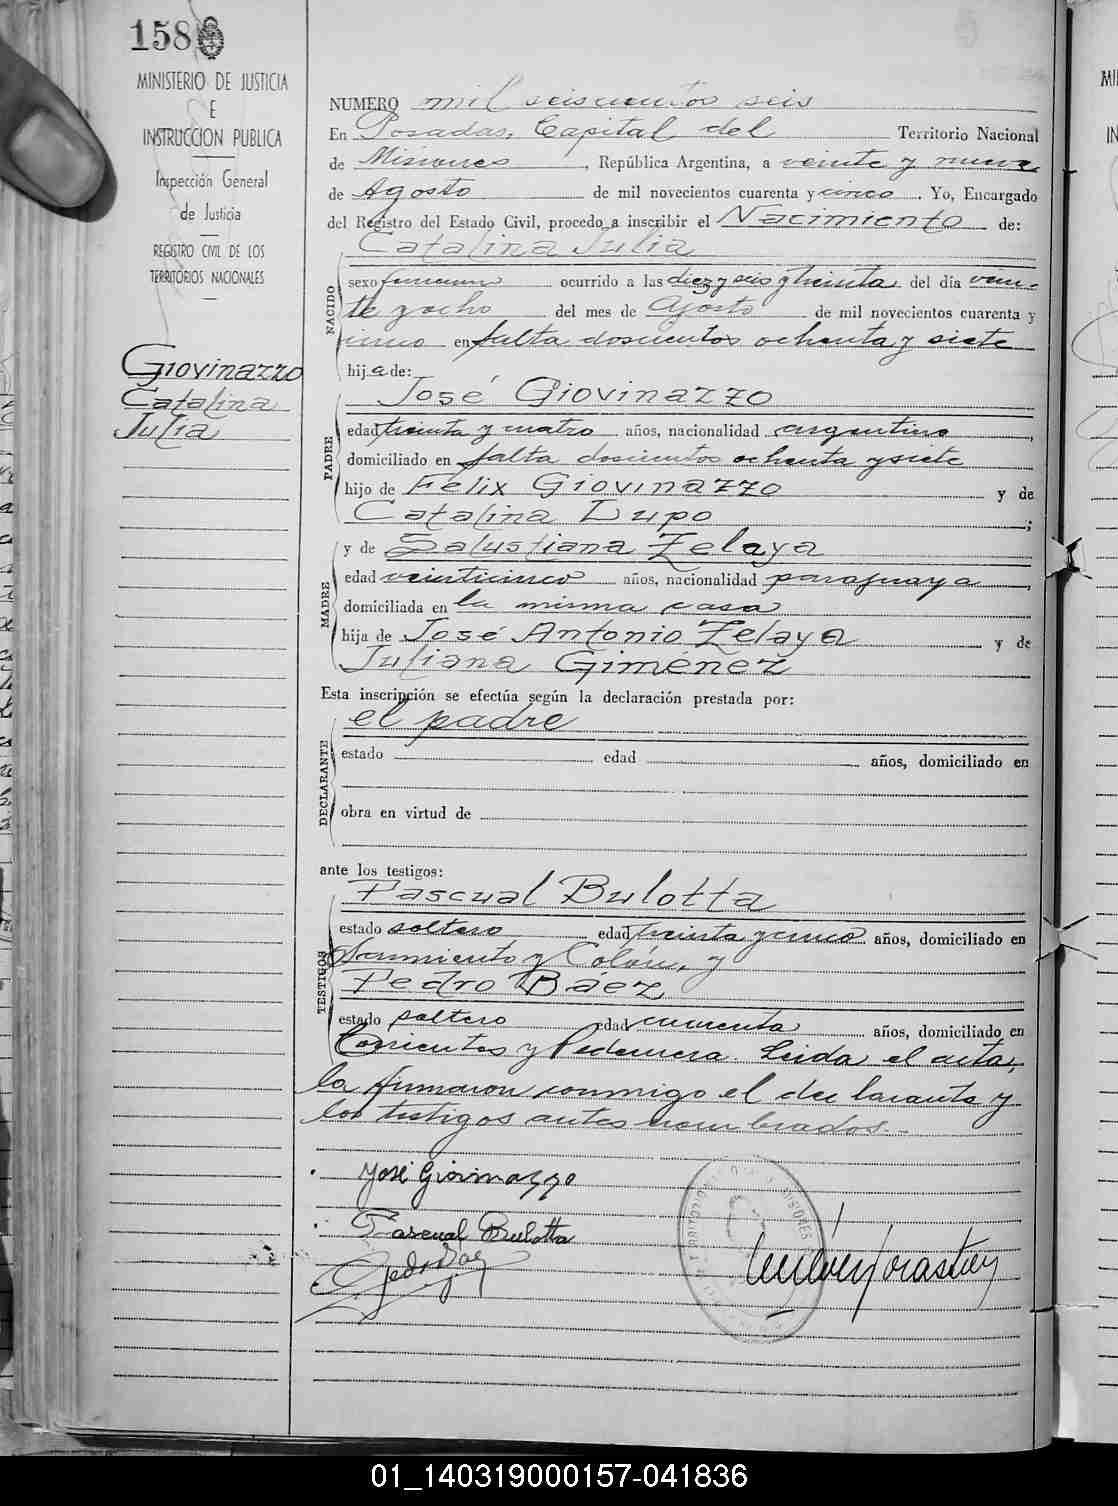 158
MINISTERIO DE JUSTICIA
E
INSTRUCCION PUBLICA
Inspección General
de Justicia
REGISTRO CIVIL DE LOS
TERRITORIOS NACIONALES
Giovinazzo
Catalina
Julia
NUMERO mil seiscientos seis
En Posadas, Capital del Territorio Nacional
de Misiones, República Argentina, a veinte y nueve
de Agosto de mil novecientos cuarenta y cinco. Yo, Encargado
del Registro del Estado Civil, procedo a inscribir el Nacimiento de:
Catalina Julia
NACIDO
sexo femenino ocurrido a las diez y seis y treinta del día vein-
te y ocho del mes de Agosto de mil novecientos cuarenta y
cinco en falta doscientos ochenta y siete
hija de:
José Giovinazzo
PADRE
edad treinta y cuatro años, nacionalidad argentino,
domiciliado en falta doscientos ochenta y siete
hijo de Félix Giovinazzo y de
Catalina Lupo;
y de Salustiana Zelaya
MADRE
edad veinticinco años, nacionalidad paraguaya,
domiciliada en la misma casa
hija de José Antonio Zelaya y de
Juliana Giménez
Esta inscripción se efectúa según la declaración prestada por:
el padre
DECLARANTE
estado edad años, domiciliado en
obra en virtud de
ante los testigos:
Pascual Bulotta
TESTIGOS
estado soltero edad treinta y cinco años, domiciliado en
Sarmiento y Colón, y
Pedro Báez
estado soltero edad cuarenta años, domiciliado en
Corrientes y Pedernera. Leida el acta,
la firmaron conmigo el declarante y
los testigos antes nombrados.-
José Giovinazzo
Pascual Bulotta
Pedro Baez
01_140319000157-041836